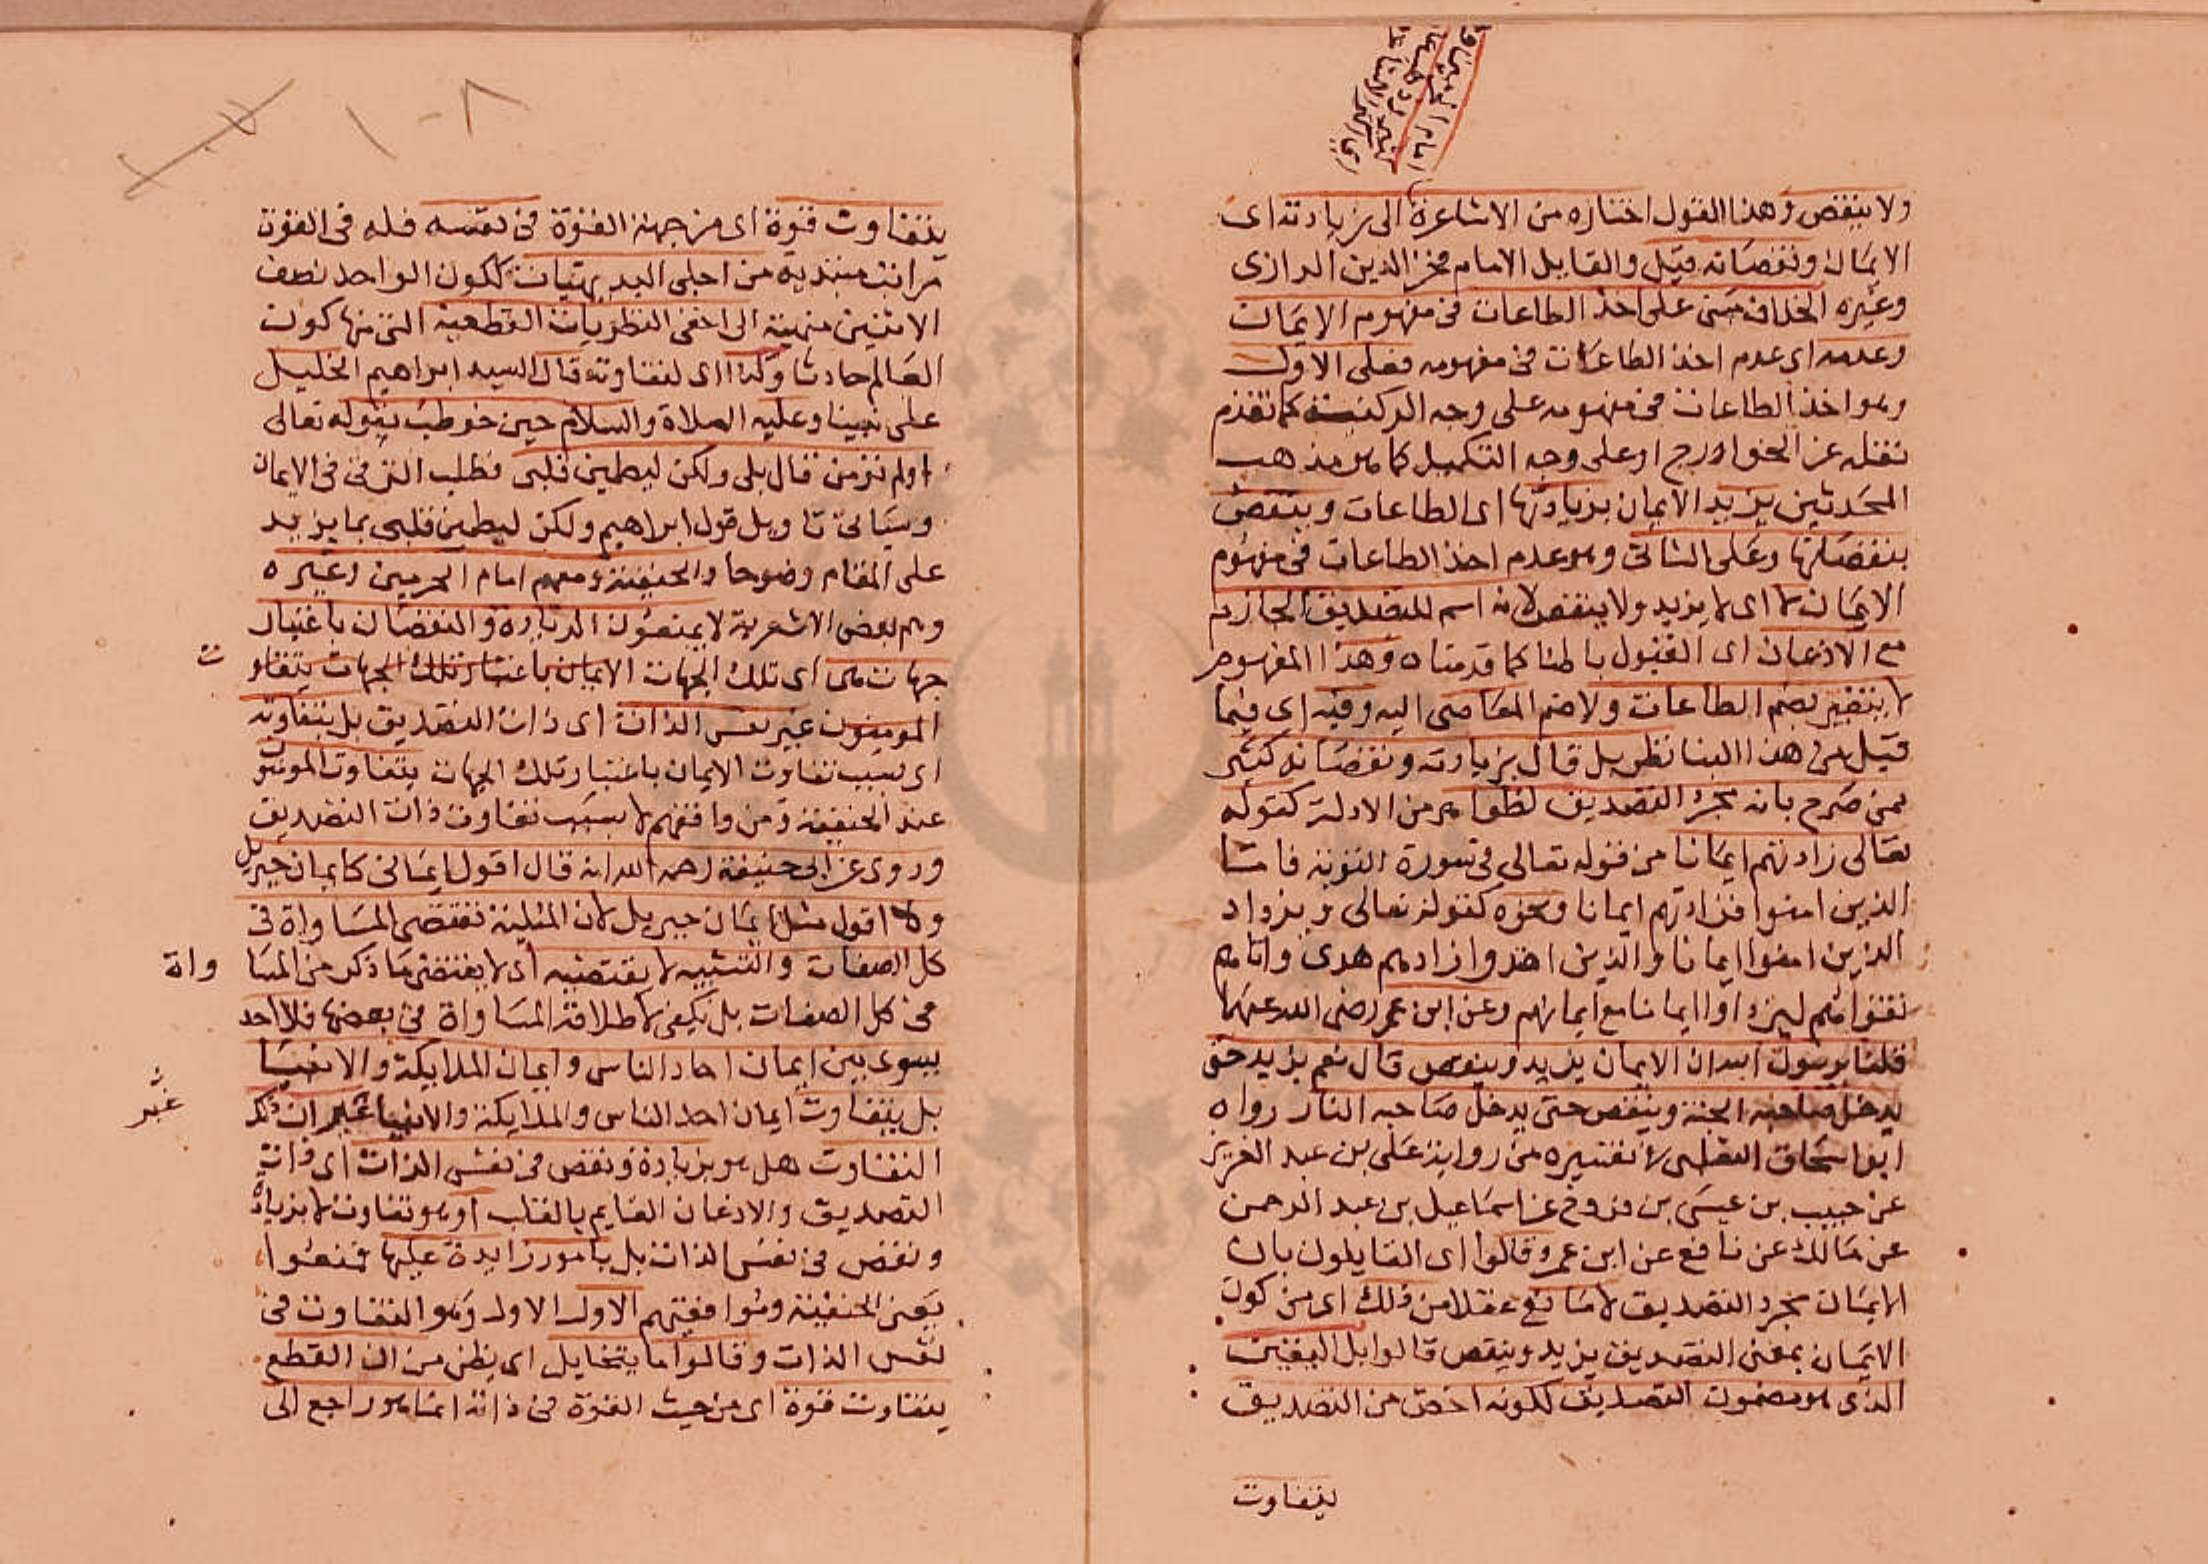 ولا ينقص وهذا القول اختاره من الاشاعرة
امام الحرمين
الى زيادته اى
الايمان ونقصانه قيل والقايل الامام فخر الدين الرازى
وغيره الخلاف مبنى على اخذ الطاعات فى مفهوم الايمان
وعدمه اى عدم اخذ الطاعات فى مفهومه فعلى الاول
وهو اخذ الطاعات فى مفهومه على وجه الركنية كما تقدم
نقله عن الخوارج او على وجه التكميل كما هو مذهب
المحدثين يزيد الايمان بزيادتها اى الطاعات وينقص
بنقصانها وعلى الثانى وهو عدم اخذ الطاعات فى مفهوم
الايمان لا اى لا يزيد ولا ينقص لانه اسم للتصديق الجازم
مع الاذعان اى القبول باطنا كما قدمناه وهذا المفهوم
لا يتغير بضم الطاعات ولا ضم المعاصى اليه وفيه اى فيما
قيل من هذا البنا نظر بل قال بزيادته ونقصانه كثير
ممن صرح بانه مجرد التصديق لظواهر من الادلة كقوله
تعالى زادتهم ايمانا من قوله تعالى فى سورة التوبة فاما
الذين امنوا فزادتهم ايمانا ونحوه كقوله تعالى ويزداد
الذين امنوا ايمانا والذين اهتدوا زادهم هدى واتاهم
تقواهم ليزدادوا ايمانا مع ايمانهم وعن ابن عمر رضى الله عنهما
قلنا يرسول الله ان الايمان يزيد وينقص قال نعم يزيد حتى
يدخل صاحبه الجنة وينقص حتى يدخل صاحبه النار رواه
ابو اسحاق الثعلبى لا تفسيره من رواية على بن عبد العزيز
عن حبيب بن عيسى بن فروخ عن اسماعيل بن عبد الرحمن
عن مالك عن نافع عن ابن عمر وقالوا اى القايلون بان
الايمان مجرد التصديق لا مانع عقلا من ذلك اى من كون
الايمان بمعنى التصديق يزيد وينقص قالوا بل اليقين
الذى هو مضمون التصديق لكونه اخص من التصديق
يتفاوت
١٠٨
يتفاوت قوة اى من جهة القوة فى نفسه فله فى القوة
مراتب مبتدية من اجلى البديهيات ككون الواحد نصف
الاثنين منهية الى اخفى النظريات القطعية التى منها كون
العالم حادثا وكذا اى لتفاوته قال السيد ابراهيم الخليل
على نبينا وعليه الصلاة والسلام حين خوطب بقوله تعالى
اولم تؤمن قال بلى ولكن ليطمين قلبى فطلب الترقى فى الايمان
وسياتى تاويل قول ابراهيم ولكن ليطمين قلبى بما يزيد
على المقام وضوحا والحنفية ومعهم امام الحرمين وغيره
وهم بعض الاشعرية لا يمنعون الزيادة والنقصان باعتبار
جهات هى اى تلك الجهات الايمان باعتبار تلك الجهات يتفاو
ت
المومنون غير نفس الذات اى ذات التصديق بل بتفاوته
اى بسبب تفاوت الايمان باعتبار تلك الجهات يتفاوت المومنون
عند الحنفية ومن وافقهم لا بسبب تفاوت ذات التصديق
وروى عن ابى حنيفة رحمه الله انه قال اقول ايمانى كايمان جبريل
ولا اقول مثل ايمان جبريل لان المثلية تقتضى المساواة فى
كل الصفات والتشبيه لا يقتضيه اى لا يقتضى ما ذكر من المسا
واة
فى كل الصفات بل يكفى لاطلاقه المساواة فى بعضها فلا احد
يسوى بين ايمان احاد الناس وايمان الملايكة والانبيا
بل يتفاوت ايمان احد الناس والملايكة والانبيا غير ان ذلك
غير
التفاوت هل هو بزيادة ونقص فى نفس الذات اى ذات
التصديق والاذعان القايم بالقلب او هو تفاوت لا بزيادة
ونقص فى نفس الذات بل بامور زايدة عليها فمنعوا
يعنى الحنفية وموافقيهم الاول الاول وهو التفاوت فى
نفس الذات وقالوا ما يتخايل اى يظن من ان القطع
يتفاوت قوة اى من حيث القوة فى ذاته انما هو راجع الى